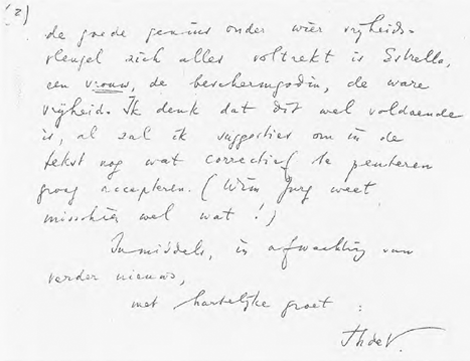 (2)
de goede genius onder wier vrijheids-
vleugel zich alles voltrekt is Estrella,
een vrouw, de beschermgodin, de ware
vrijheid. Ik denk dat dit wel voldoende
is, al zal ik suggesties om in de
tekst nog wat correcties te peuteren
graag accepteren. (Wim Jurg weet
misschien wel wat!)
Inmiddels, in afwachting van
verder nieuws,
met hartelijke groet:
ThdeV.